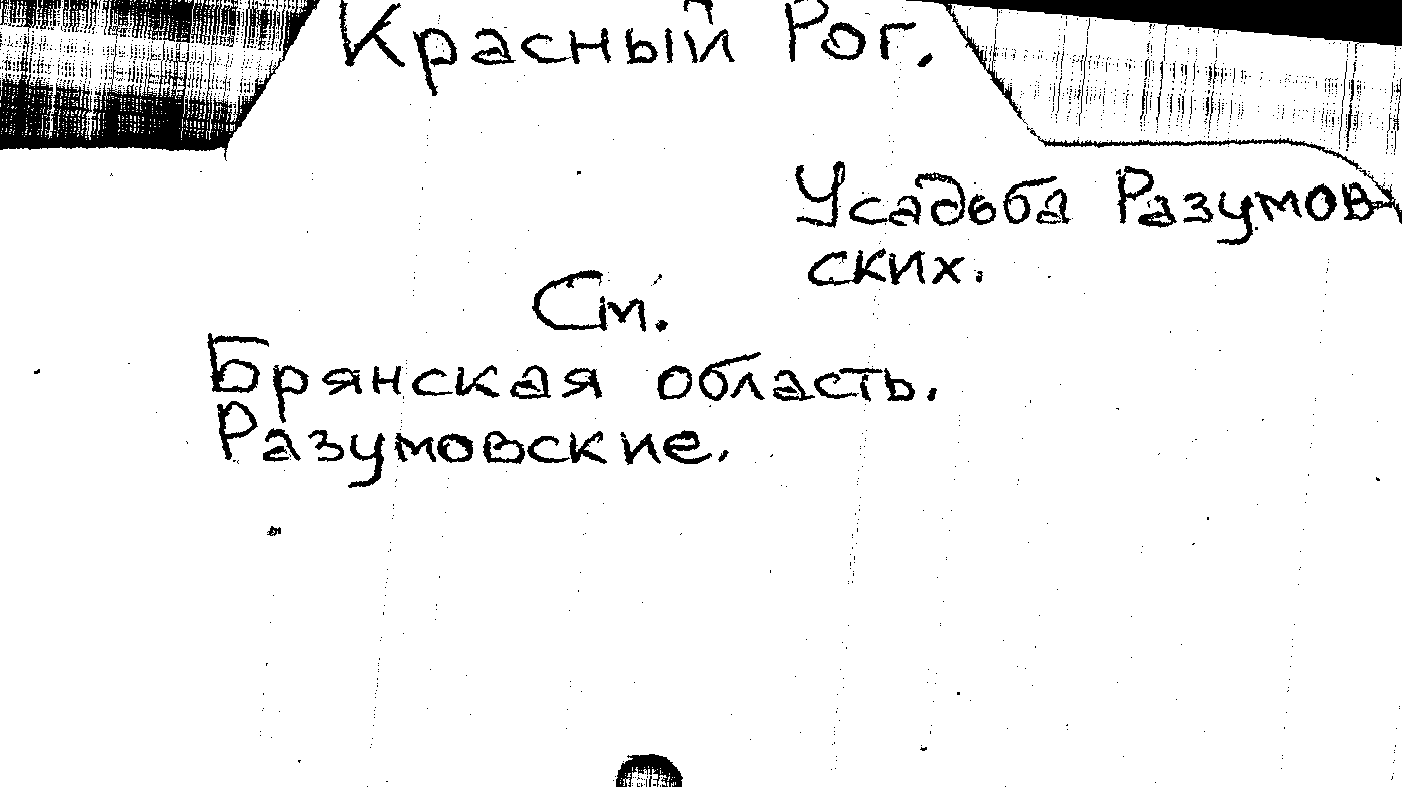 Красный Рог.
Усадьба Разумов-
ских.
См.
Брянская область.
Разумовские.